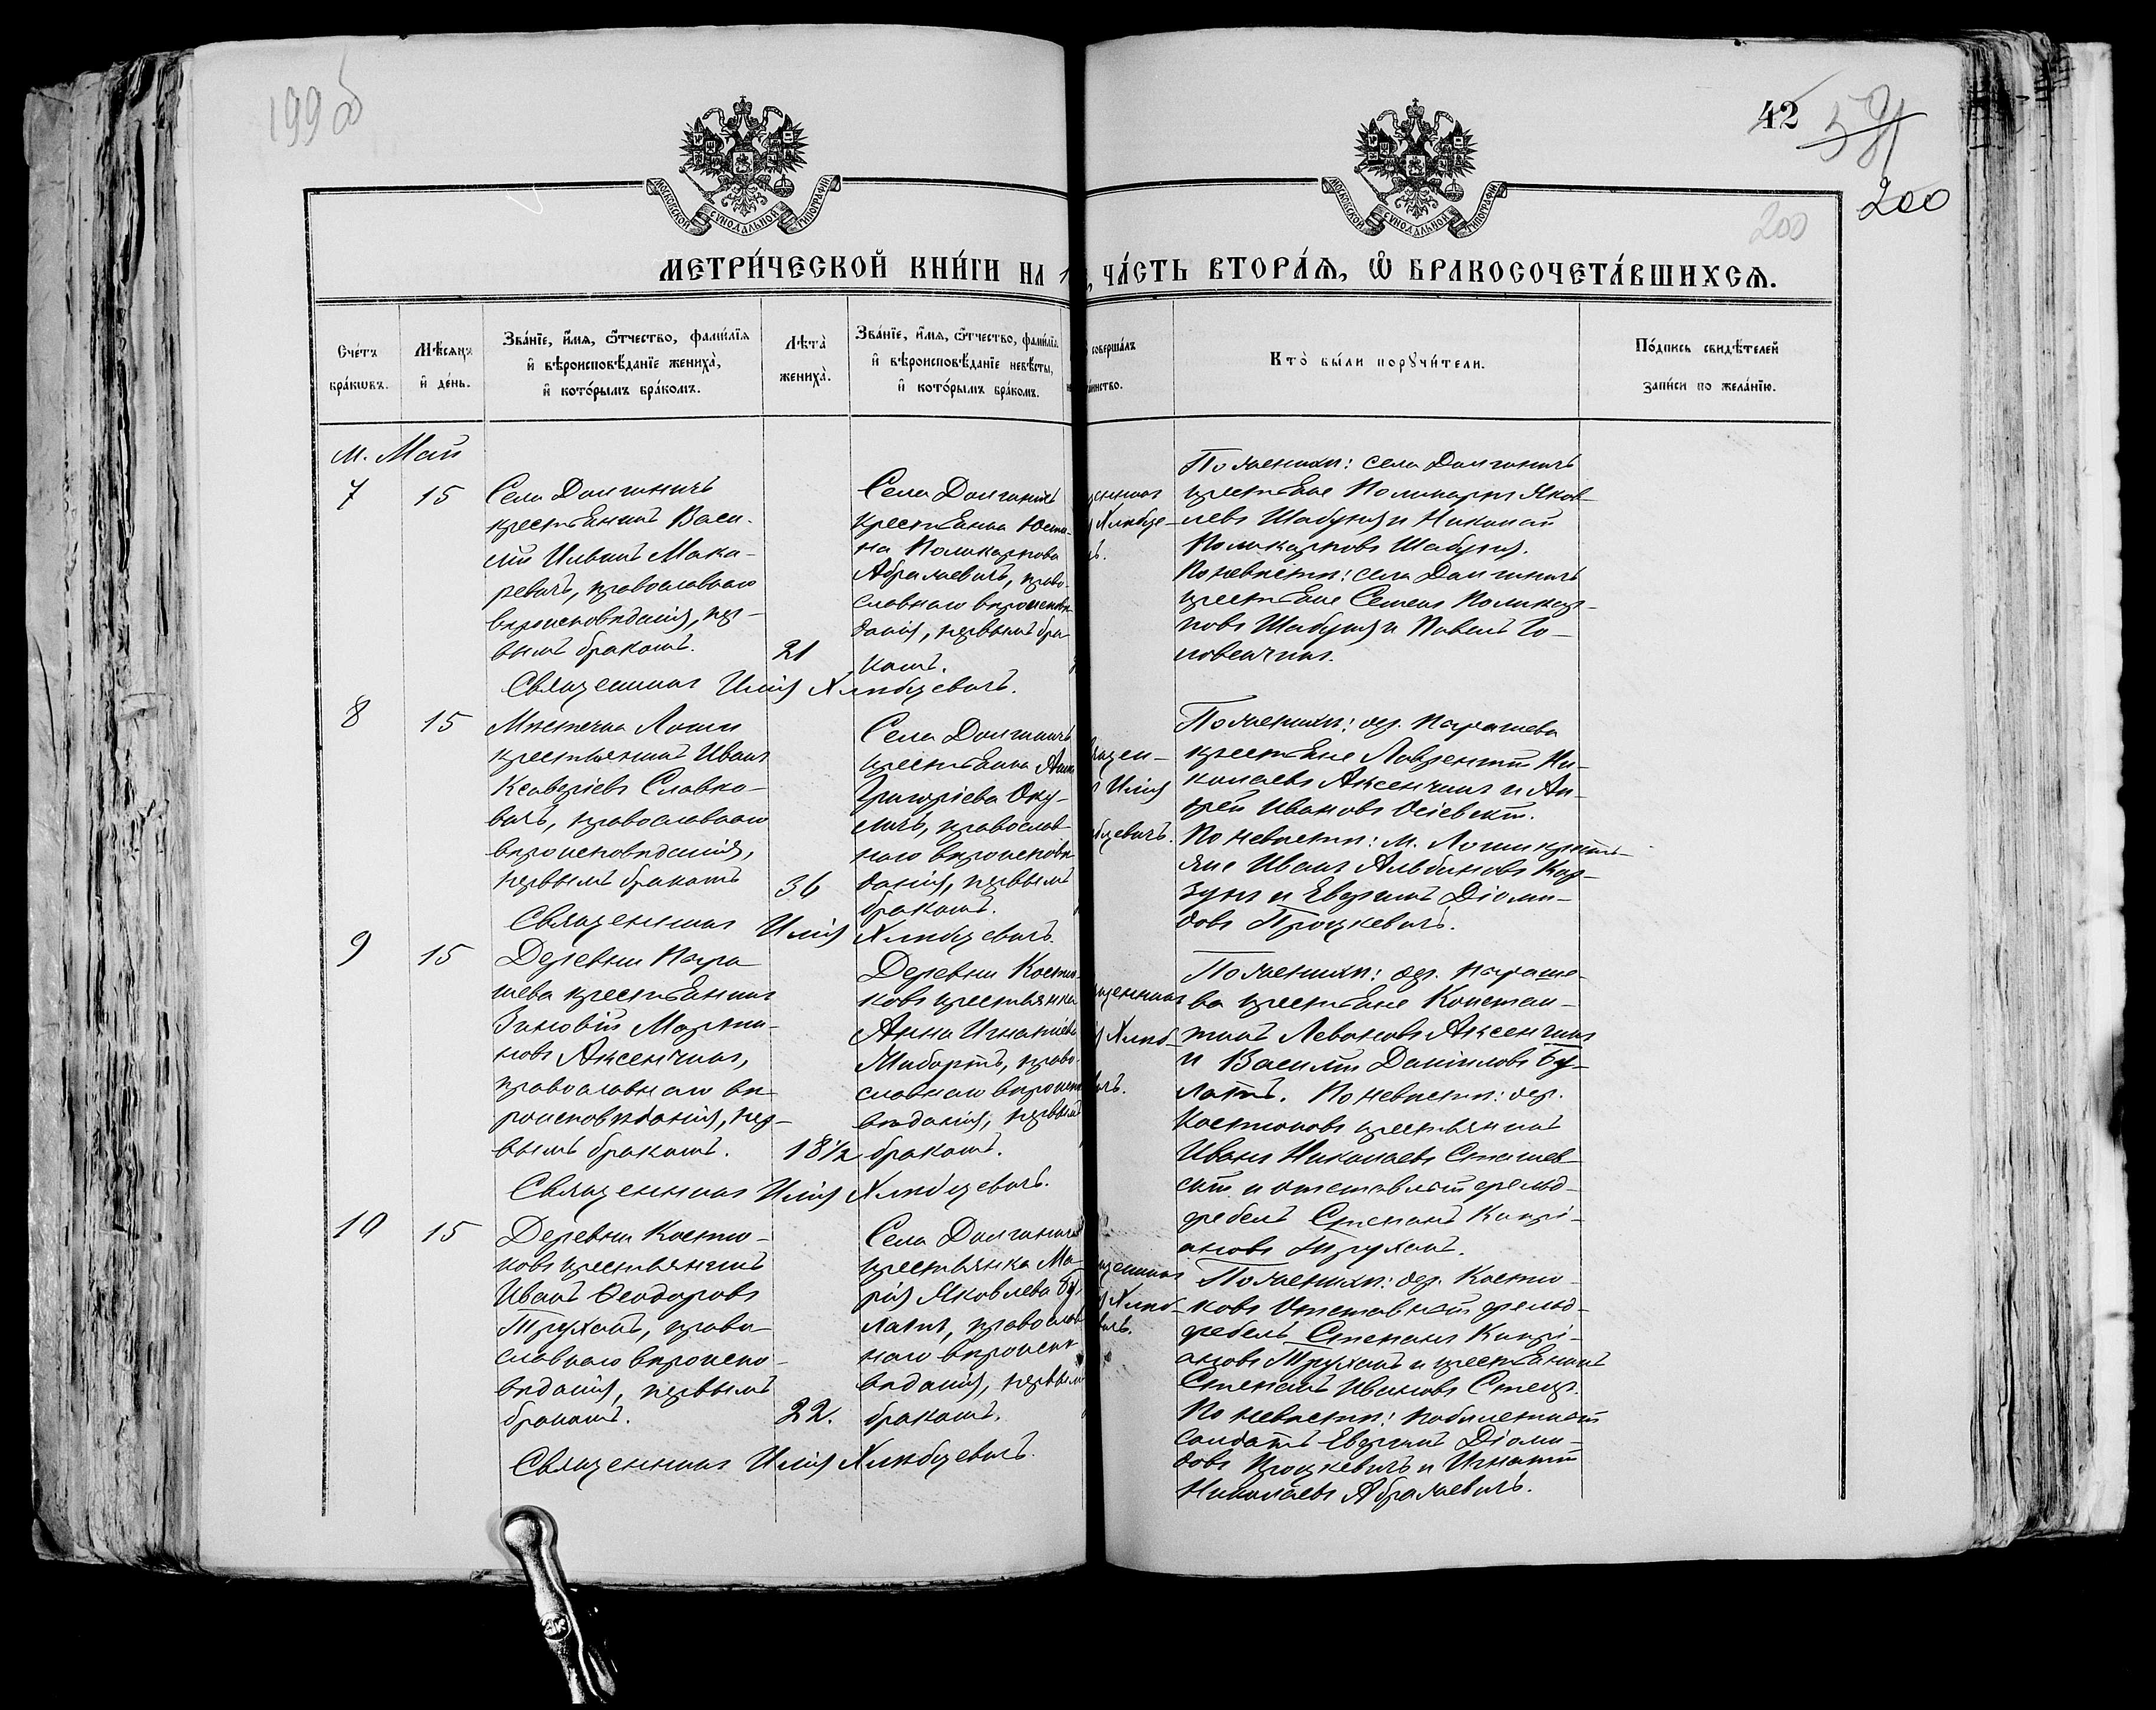 199 об
42
59
200
200
МОСКОВСКОЙ СѴНОДАЛЬНОЙ ТИПОГРАФІИ
МОСКОВСКОЙ СѴНОДАЛЬНОЙ ТИПОГРАФІИ
МЕТРИ́ЧЕСКОЙ КНИ́ГИ НА 1
ЧА́СТЬ ВТОРА́Ѧ, Ѽ БРАКОСОЧЕТА́ВШИХСѦ.
Сче́тъ бра́кѡвъ.
Мѣ́сѧцъ и҆ де́нь.
Зва́нїе, и҆́мѧ, ѻ҆́тчество, фами́лїѧ
и҆ вѣроисповѣ́данїе жениха̀,
и҆ кото́рымъ бра́комъ.
Лѣта̀ жениха̀.
Зва́нїе, и҆́мѧ, ѻ҆́тчество, фами́лїѧ
и҆ вѣроисповѣ́данїе невѣ́сты,
и҆ кото́рымъ бра́комъ.
соверша́лъ
та́инство.
Кто̀ бы́ли порꙋчи́тели.
По́дпись свидѣ́телей
за́писи по жела́нїю.
м. Май
7
15
Села Долгиничъ
крестьянинъ Васи-
лій Ильинъ Мака-
ревичъ, православнаго
вѣроисповѣданія, пер-
вымъ бракомъ.
21
Села Долгиничъ
крестьянка Юсти-
на Поликарпова
Абрамевичъ, право-
славнаго вѣроисповѣ-
данія, первымъ бра-
комъ.
щенникъ
Хлѣбце-
ъ.
По женихѣ: села Долгиничъ
крестьяне Поликарпъ Яков-
левъ Шабуня и Николай
Поликарповъ Шабуня.
По невѣстѣ: села Долгиничъ
крестьяне Семенъ Поликар-
повъ Шабуня и Павелъ Го-
ловенчикъ.
Священникъ Илія Хлѣбцевичъ.
8
15
Мѣстечка Логи
крестьянинъ Иванъ
Ксаверіевъ Славко-
вичъ, православнаго
вѣроисповѣданія,
первымъ бракомъ
36
Села Долгиничъ
крестьянка Анна
Григоріева
православ-
наго вѣроисповѣ-
данія, первымъ
бракомъ.
щен-
Илія
бцевичъ.
По женихѣ: дер.
крестьяне Лаврентій Ни-
колаевъ Аксенчикъ и Ан-
дрей Ивановъ
По невѣстѣ: м. Логи кресть-
яне Иванъ Альбиновъ Кор-
зунъ и Евдокимъ Діоми-
довъ Процкевичъ.
Священникъ Илія Хлѣбцевичъ.
9
15
Деревни
крестьянинъ
Зиновій Марти-
новъ Аксенчикъ,
православнаго вѣ-
роисповѣданія, пер-
вымъ бракомъ.
18½
Деревни Костю-
ковъ крестьянка
Анна Игнатіева
православнаго
вѣданія, первымъ
бракомъ.
щенникъ
Хлѣб-
ичъ.
По женихѣ: дер.
ва крестьяне Констан-
тинъ Левоновъ Аксенчикъ
и Василій Даніиловъ Бу-
латъ. По невѣстѣ: дер.
Костюковъ крестьянинъ
Иванъ Николаевъ Сташев-
скій и отставной фельд-
фебель Степанъ Кипрі-
ановъ Труханъ.
Священникъ Илія Хлѣбцевичъ.
10
15
Деревни Костю-
ковъ крестьянинъ
Иванъ Ѳеодоровъ
Труханъ, право-
славнаго вѣроиспо-
вѣданія, первымъ
бракомъ.
22.
Села Долгиничъ
крестьянка Ма-
рія Яковлева Бу-
латъ, православ-
наго вѣроиспо-
вѣданія, первымъ
бракомъ.
щенникъ
Хлѣб-
вичъ.
По женихѣ: дер. Костю-
ковъ отставной фельд-
фебель Степанъ Кипрі-
ановъ Труханъ и крестьянинъ
Степанъ Ивановъ
По невѣстѣ:
солдатъ Евдокимъ Діоми-
довъ Процкевичъ и Игнатій
Николаевъ Абрамевичъ.
Священникъ Илія Хлѣбцевичъ.